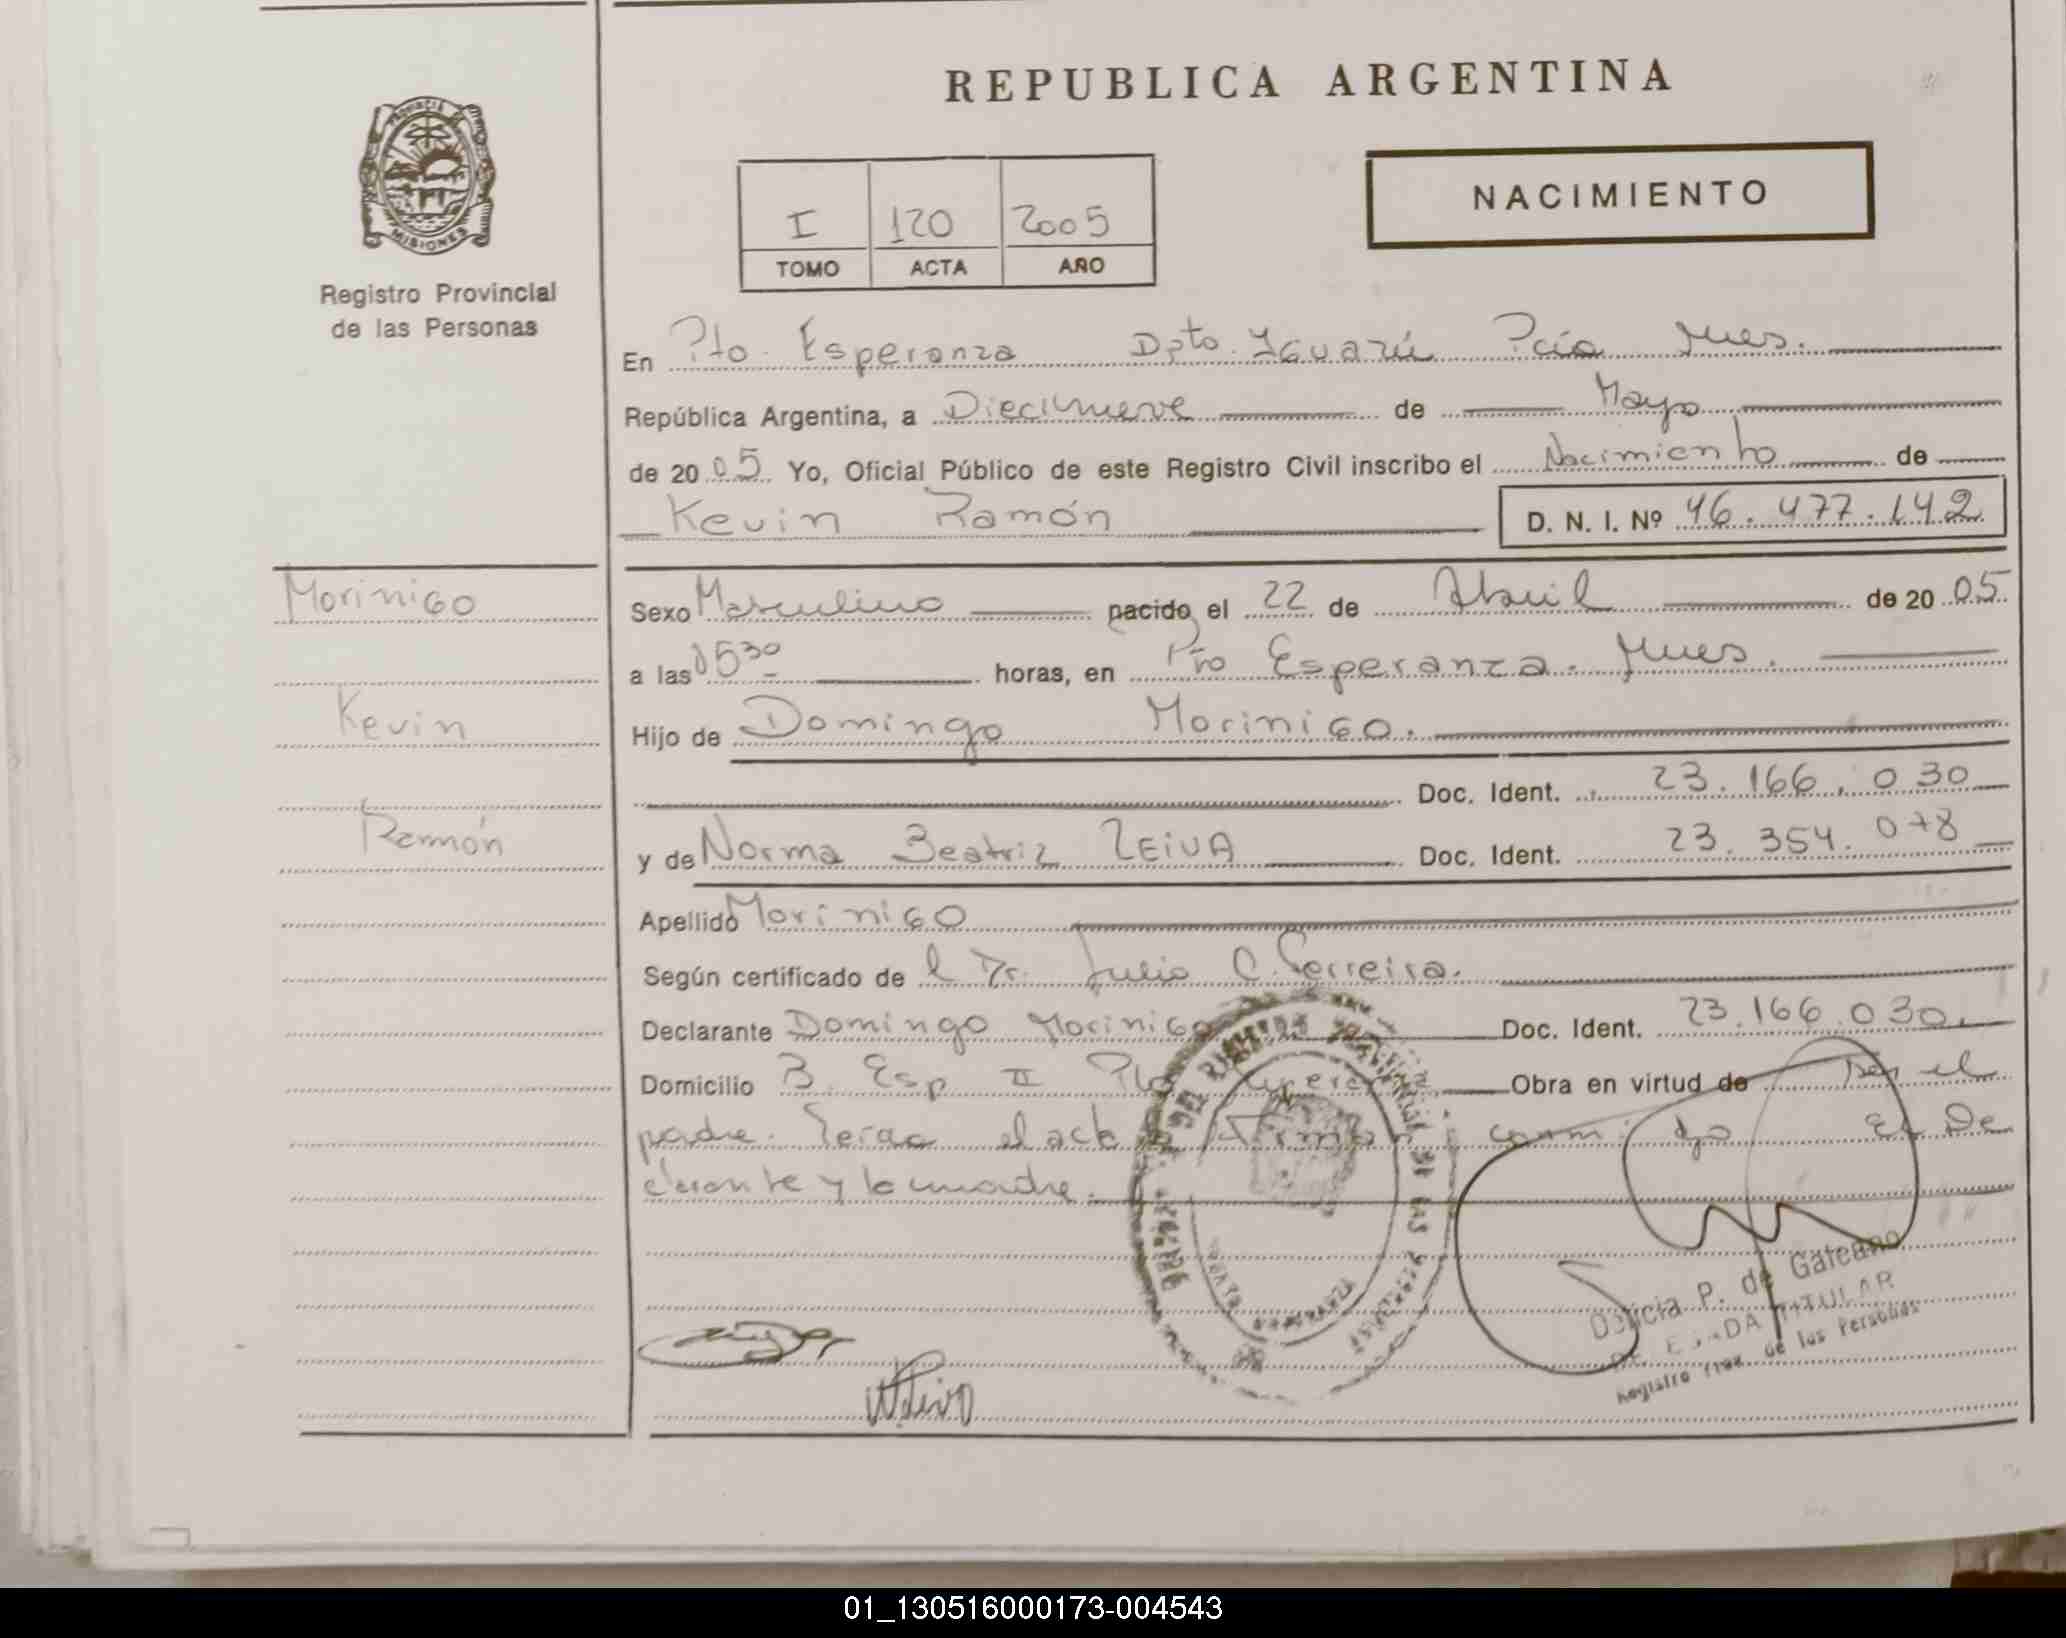 REPUBLICA ARGENTINA
PROVINCIA DE
MISIONES
Registro Provincial
de las Personas
NACIMIENTO
I 120 2005
TOMO ACTA AÑO
En Pto. Esperanza Dpto. Iguazú Pcia Mnes.
República Argentina, a Diecinueve de Mayo
de 2005 Yo, Oficial Público de este Registro Civil inscribo el Nacimiento de
Kevin Ramón D. N. I. Nº 46.477.142
Morinigo
Kevin
Ramón
Sexo Masculino nacido el 22 de Abril de 2005
a las 0530 horas, en Pto Esperanza. Mnes.
Hijo de Domingo Morinigo.
Doc. Ident. 23.166.030
y de Norma Beatriz LEIVA Doc. Ident. 23.354.078
Apellido Morinigo
Según certificado de l Dr. Julio C. Ferreira.
Declarante Domingo Morinigo Doc. Ident. 23.166.030.
Domicilio B. Esp II Pto Esperanza Obra en virtud de ser el
padre. Leida el acta Firman conmigo el De
clarante y la madre.
Delicia P. de Galeano
TITULAR
Registro Prov. de las Personas
01_130516000173-004543